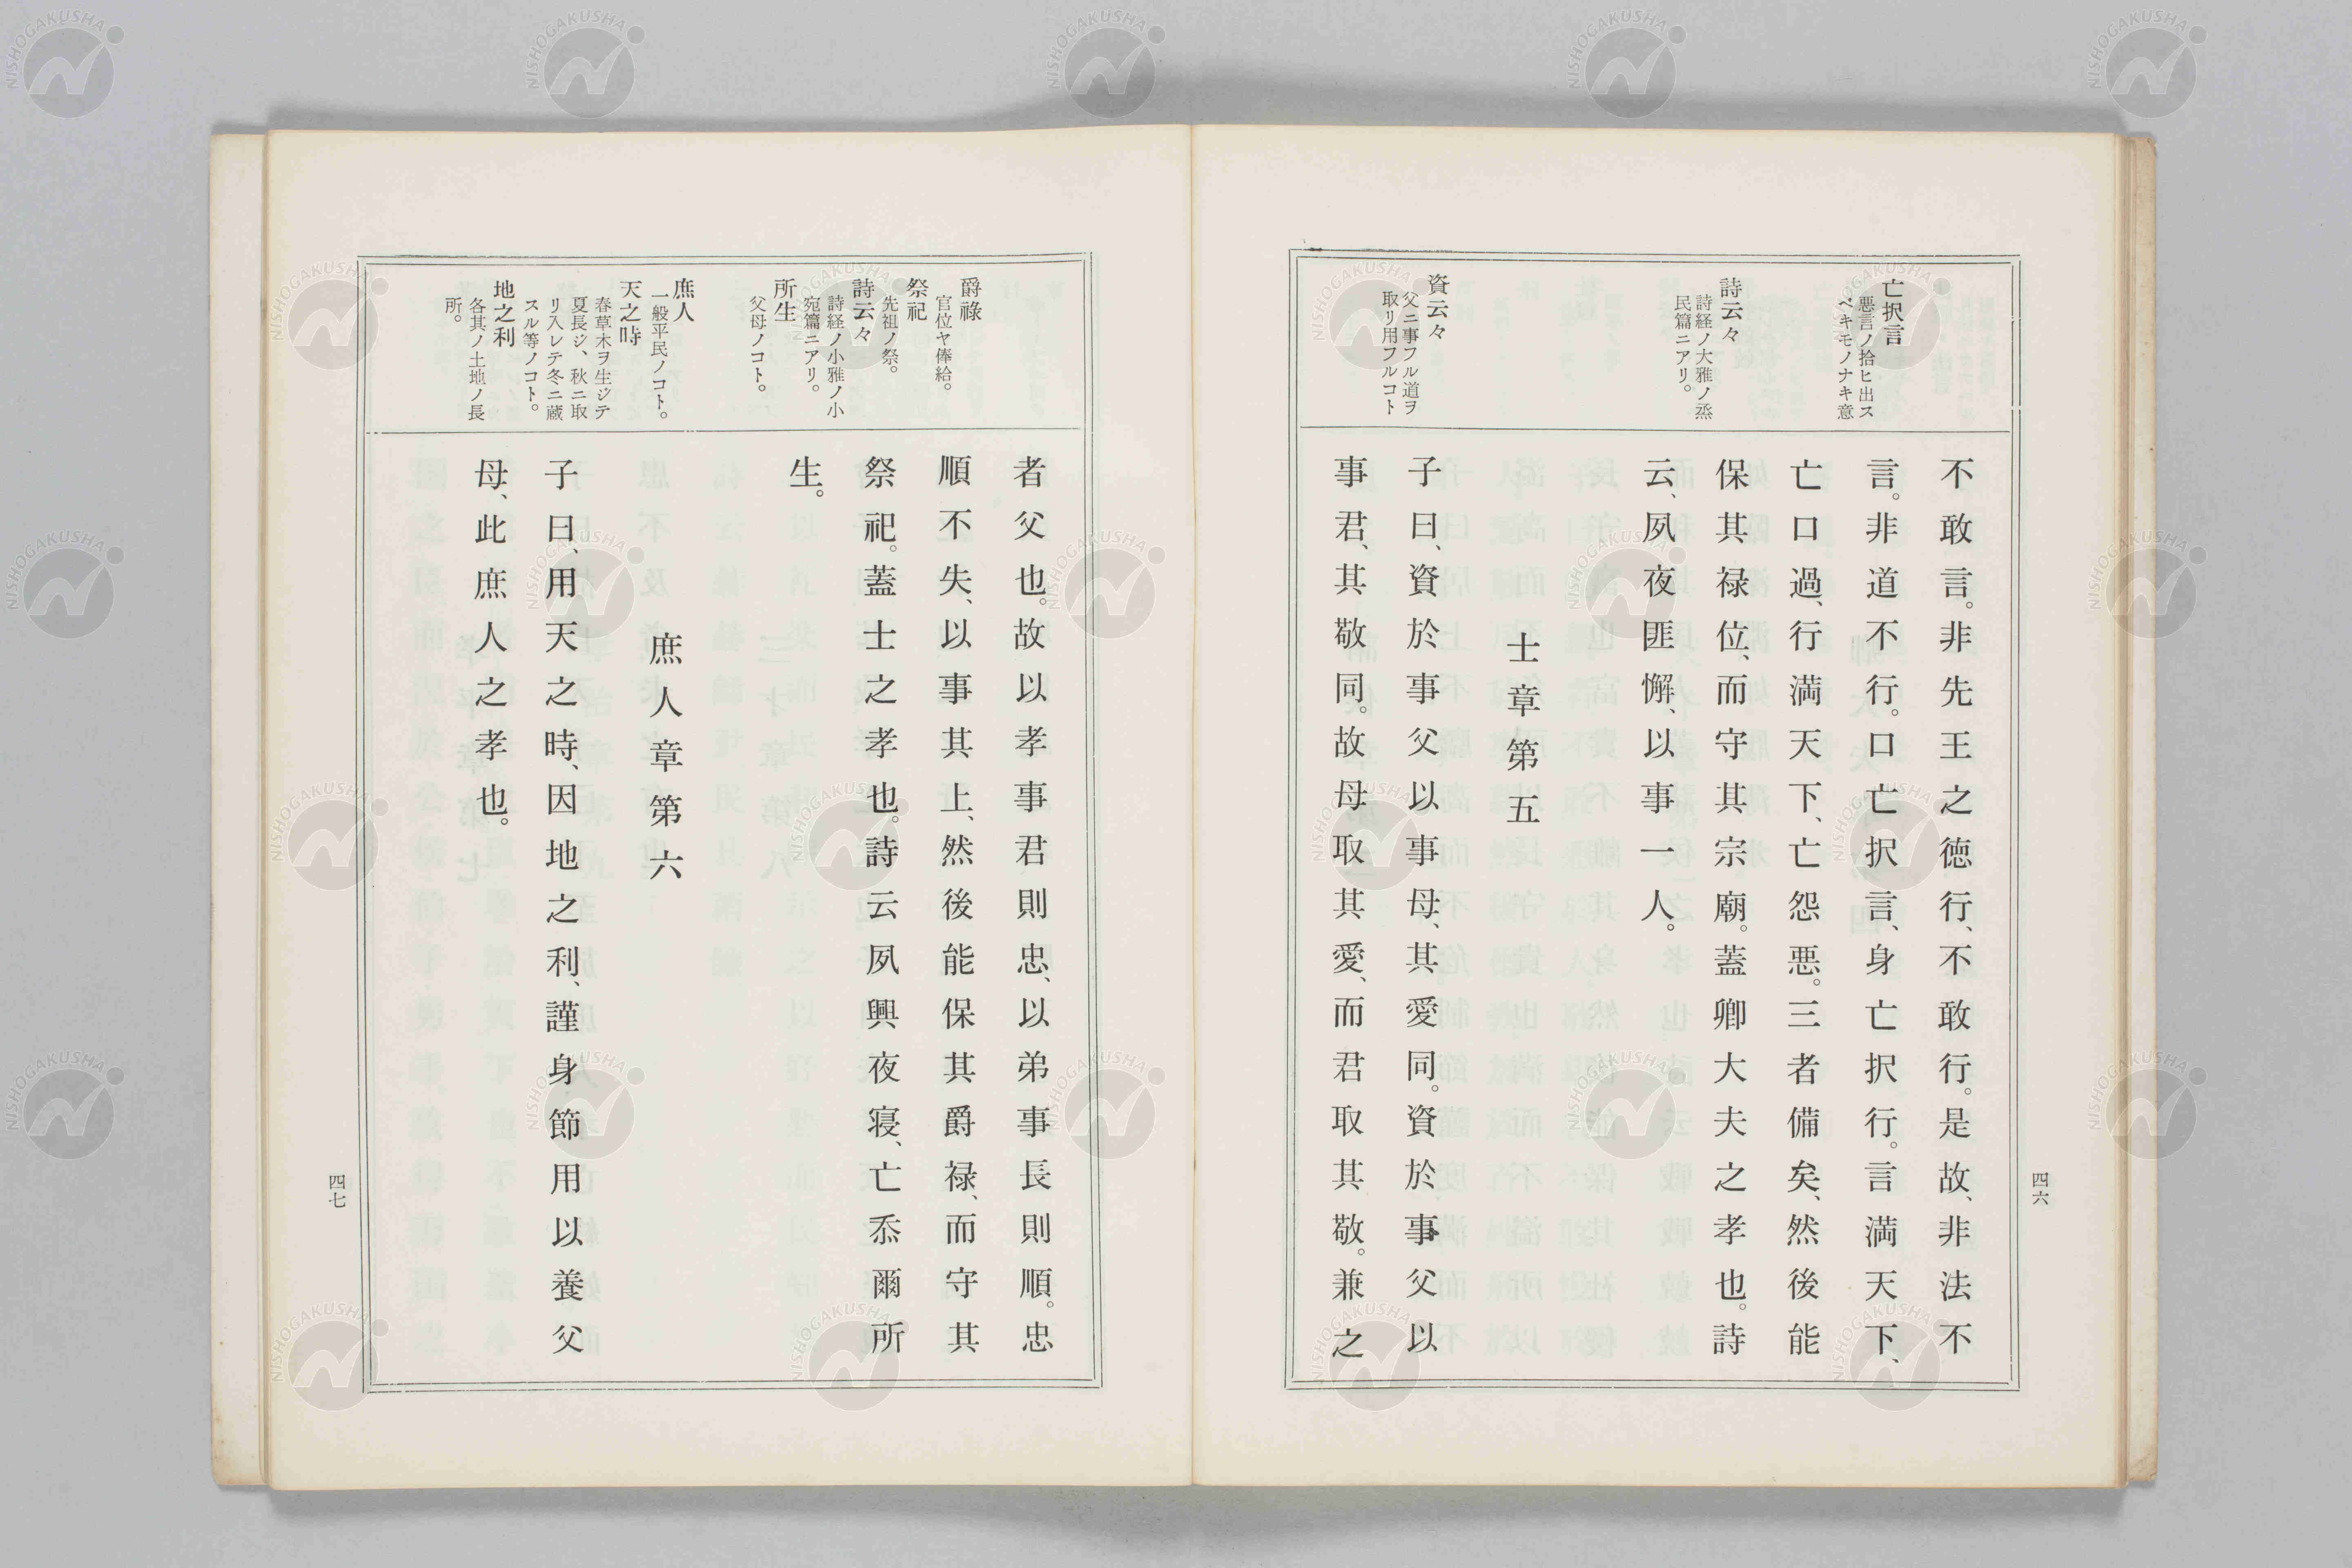 亡択言
悪言ノ拾ヒ出ス
ベキモノナキ意
詩云々
詩経ノ大雅ノ烝
民篇ニアリ。
資云々
父ニ事フル道ヲ
取リ用フルコト
不敢言。非先王之徳行、不敢行。是故、非法不
言。非道不行。口亡択言、身亡択行。言満天下、
亡口過、行満天下、亡怨悪。三者備矣、然後能
保其禄位、而守其宗廟。蓋卿大夫之孝也。詩
云、夙夜匪懈、以事一人。
士章第五
子曰、資於事父以事母、其愛同。資於事父以
事君、其敬同。故母取其愛、而君取其敬。兼之
四六
爵祿
官位ヤ俸給。
祭祀
先祖ノ祭。
詩云々
詩経ノ小雅ノ小
宛篇ニアリ。
所生
父母ノコト。
庶人
一般平民ノコト。
天之時
春草木ヲ生ジテ
夏長ジ、秋ニ取
リ入レテ冬ニ蔵
スル等ノコト。
地之利
各其ノ土地ノ長
所。
者父也。故以孝事君則忠、以弟事長則順。忠
順不失、以事其上、然後能保其爵禄、而守其
祭祀。蓋士之孝也。詩云夙興夜寝、亡忝爾所
生。
庶人章第六
子曰、用天之時、因地之利、謹身節用以養父
母、此庶人之孝也。
四七
NISHOGAKUSHA